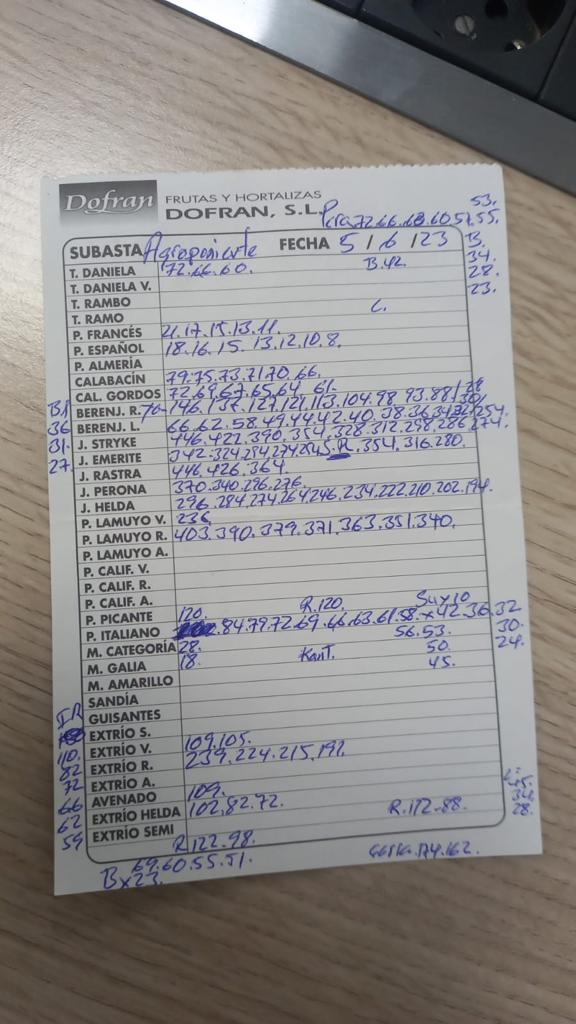 Dofran FRUTAS Y HORTALIZAS
DOFRAN, S.L.
Pera 72.66.63.60.57.55.
53.
SUBASTA Agroponiente FECHA 5/6/23 B.
34.
28.
23.
T. DANIELA 72.66.60. B.42.
T. DANIELA V.
T. RAMBO
T. RAMO C.
P. FRANCÉS 21.17.15.13.11.
P. ESPAÑOL 18.16.15.13.12.10.8.
P. ALMERÍA
CALABACÍN 79.75.73.71.70.66.
CAL. GORDOS 72.69.67.65.64 61.
BERENJ. R. 146.137.127.121.113.104.98 93.88
BERENJ. L. 66.62.58.49.44.42.40.38.36.34
36
31.
27.
J. STRYKE 446.422.390.354.328.312.298.286.274.
254.
J. EMERITE 342.324.284.274 S.R. 354.316.280.
J. RASTRA 446.426.364.
J. PERONA 370.340.296.276.
J. HELDA 296.284.274.264.246.234.222.210.202.194.
P. LAMUYO V. 236.
P. LAMUYO R. 403.390.379.371.363.351.340.
P. LAMUYO A.
P. CALIF. V.
P. CALIF. R.
P. CALIF. A.
P. PICANTE 120. R.120.
P. ITALIANO 84.79.72.69.66.63.61.58.x42.36.32
M. CATEGORÍA 28. 56.53. 30.
M. GALIA 18. 50. 24.
45.
M. AMARILLO
SANDÍA
GUISANTES
EXTRÍO S.
EXTRÍO V. 109.105.
EXTRÍO R. 239.224.215.191.
EXTRÍO A.
AVENADO 109.
EXTRÍO HELDA 102.82.72. R.112.88.
EXTRÍO SEMI
110.
82
72
66
62
59
34.
28.
R.122.98.
69.60.55.51.
Bx23.
174.162.